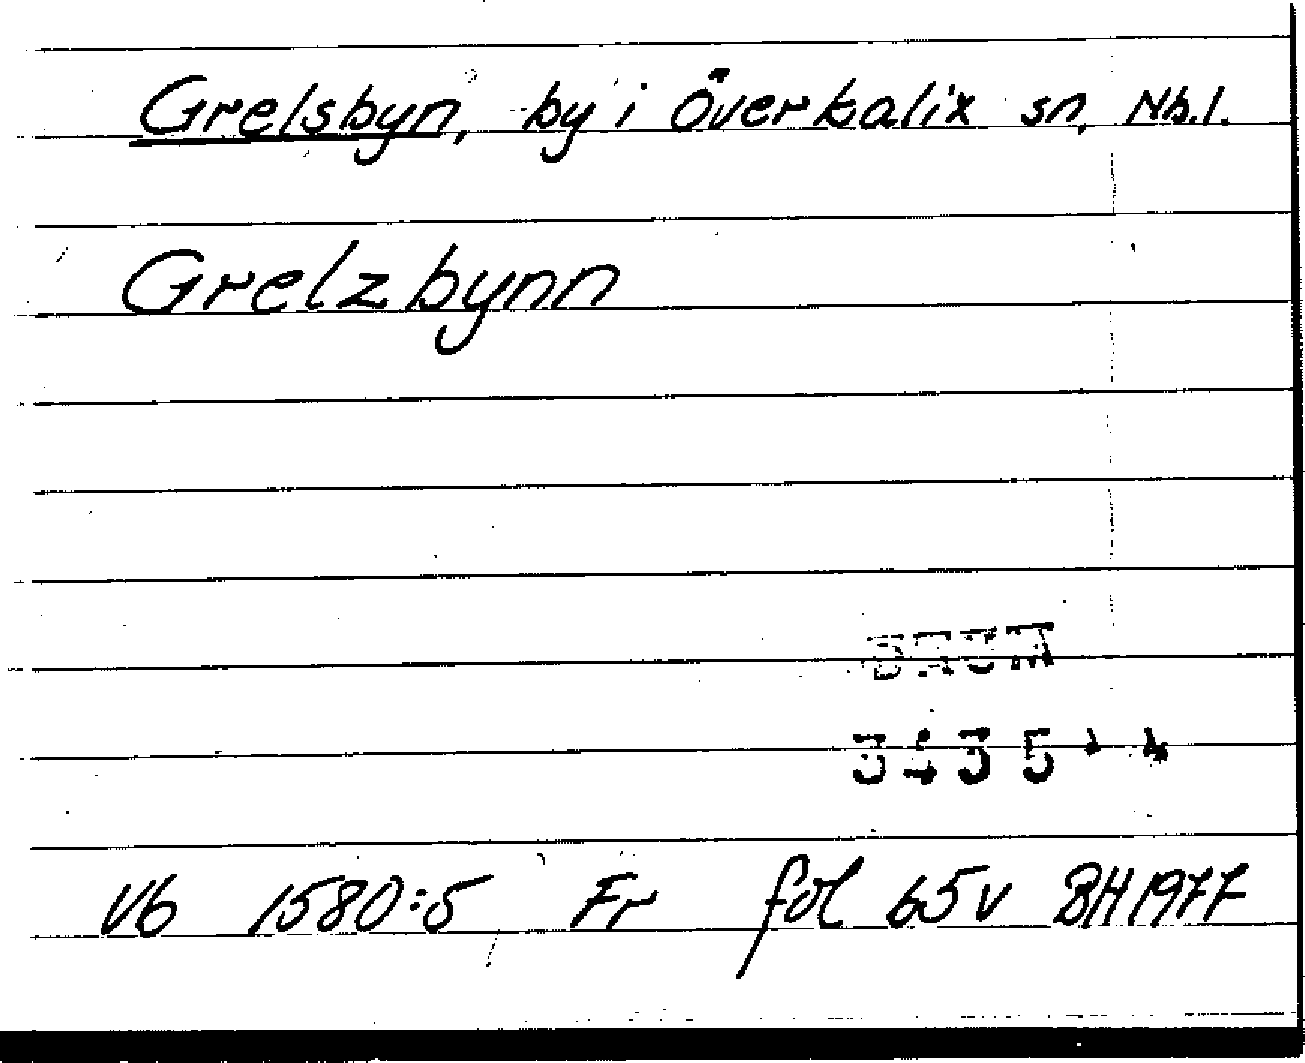 Grelsbyn, by i Överkalix sn, Nb.l.
Grelzbynn
Vb 1580:5 Fr fol 65v BH1977